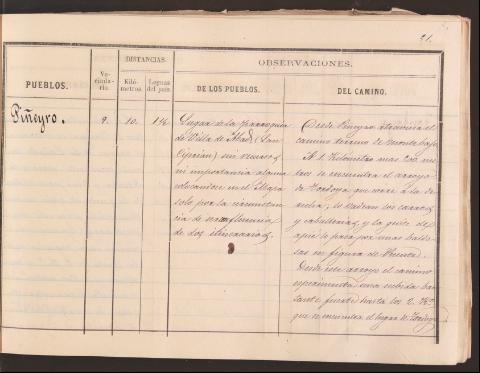 21.
PUEBLOS.
Vecindario
DISTANCIAS.
Kilómetros
Leguas del país
OBSERVACIONES.
DE LOS PUEBLOS.
DEL CAMINO.
Piñeyro.
9.
10.
1½
Lugar de la parroquia
de Villa de Abad (San
Ciprian) sin recursos
ni importancia alguna
colocandose en el Mapa
solo por la circunstan
cia de ser confluencia
de dos itinerarios.
Desde Piñeyro atraviesa el
camino terreno de monte bajo.
A 1 Kilometro mas 200 me
tros se encuentra el arroyo
de Tordoya que corre á la de
recha; lo vadean los carros
y caballerias, y la gente de
á pie lo pasa por unas baldo
sas en figura de Puente.
Desde este arroyo el camino
esperimenta una subida bas
tante fuerte hasta los 2. Ks.
que se encuentra el lugar de Tordoya